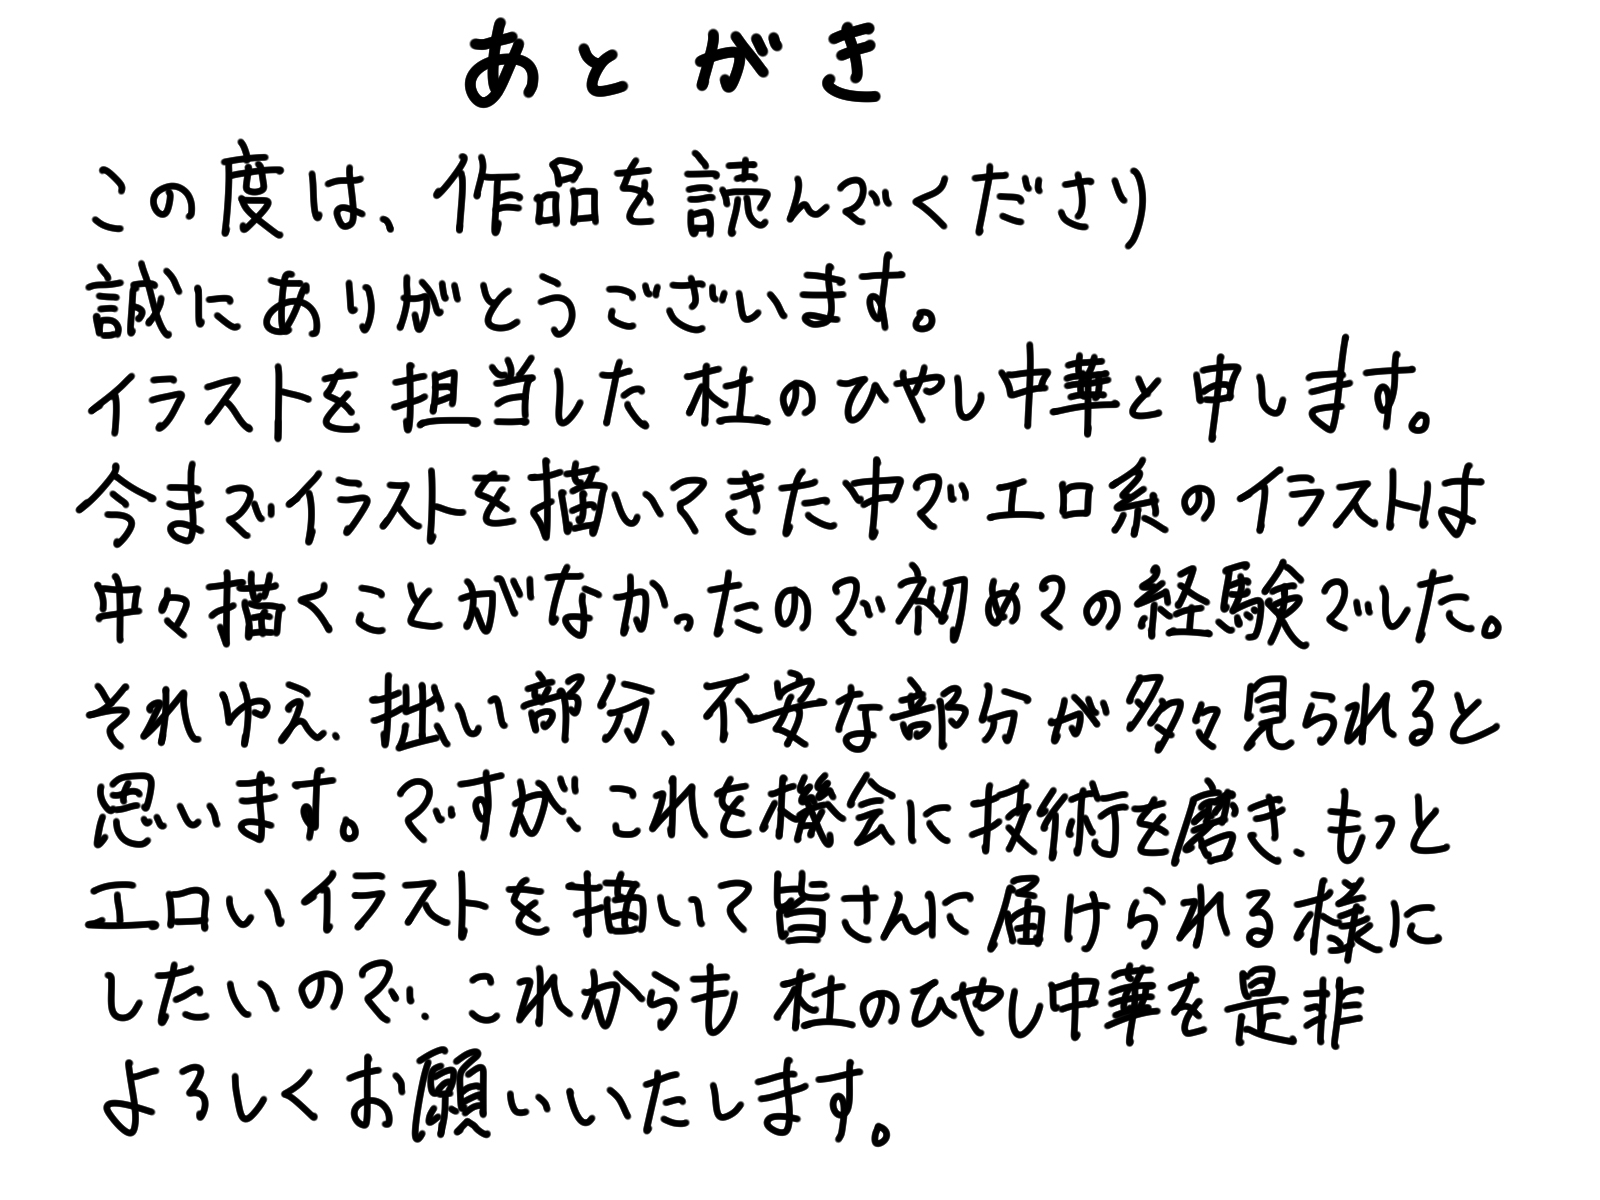 あとがき
この度は、作品を読んでくださり
誠にありがとうございます。
イラストを担当した杜のひやし中華と申します。
今までイラストを描いてきた中でエロ系のイラストは
中々描くことがなかったので初めての経験でした。
それゆえ、拙い部分、不安な部分が多々見られると
思います。ですがこれを機会に技術を磨き、もっと
エロいイラストを描いて皆さんに届けられる様に
したいので、これからも杜のひやし中華を是非
よろしくお願いいたします。